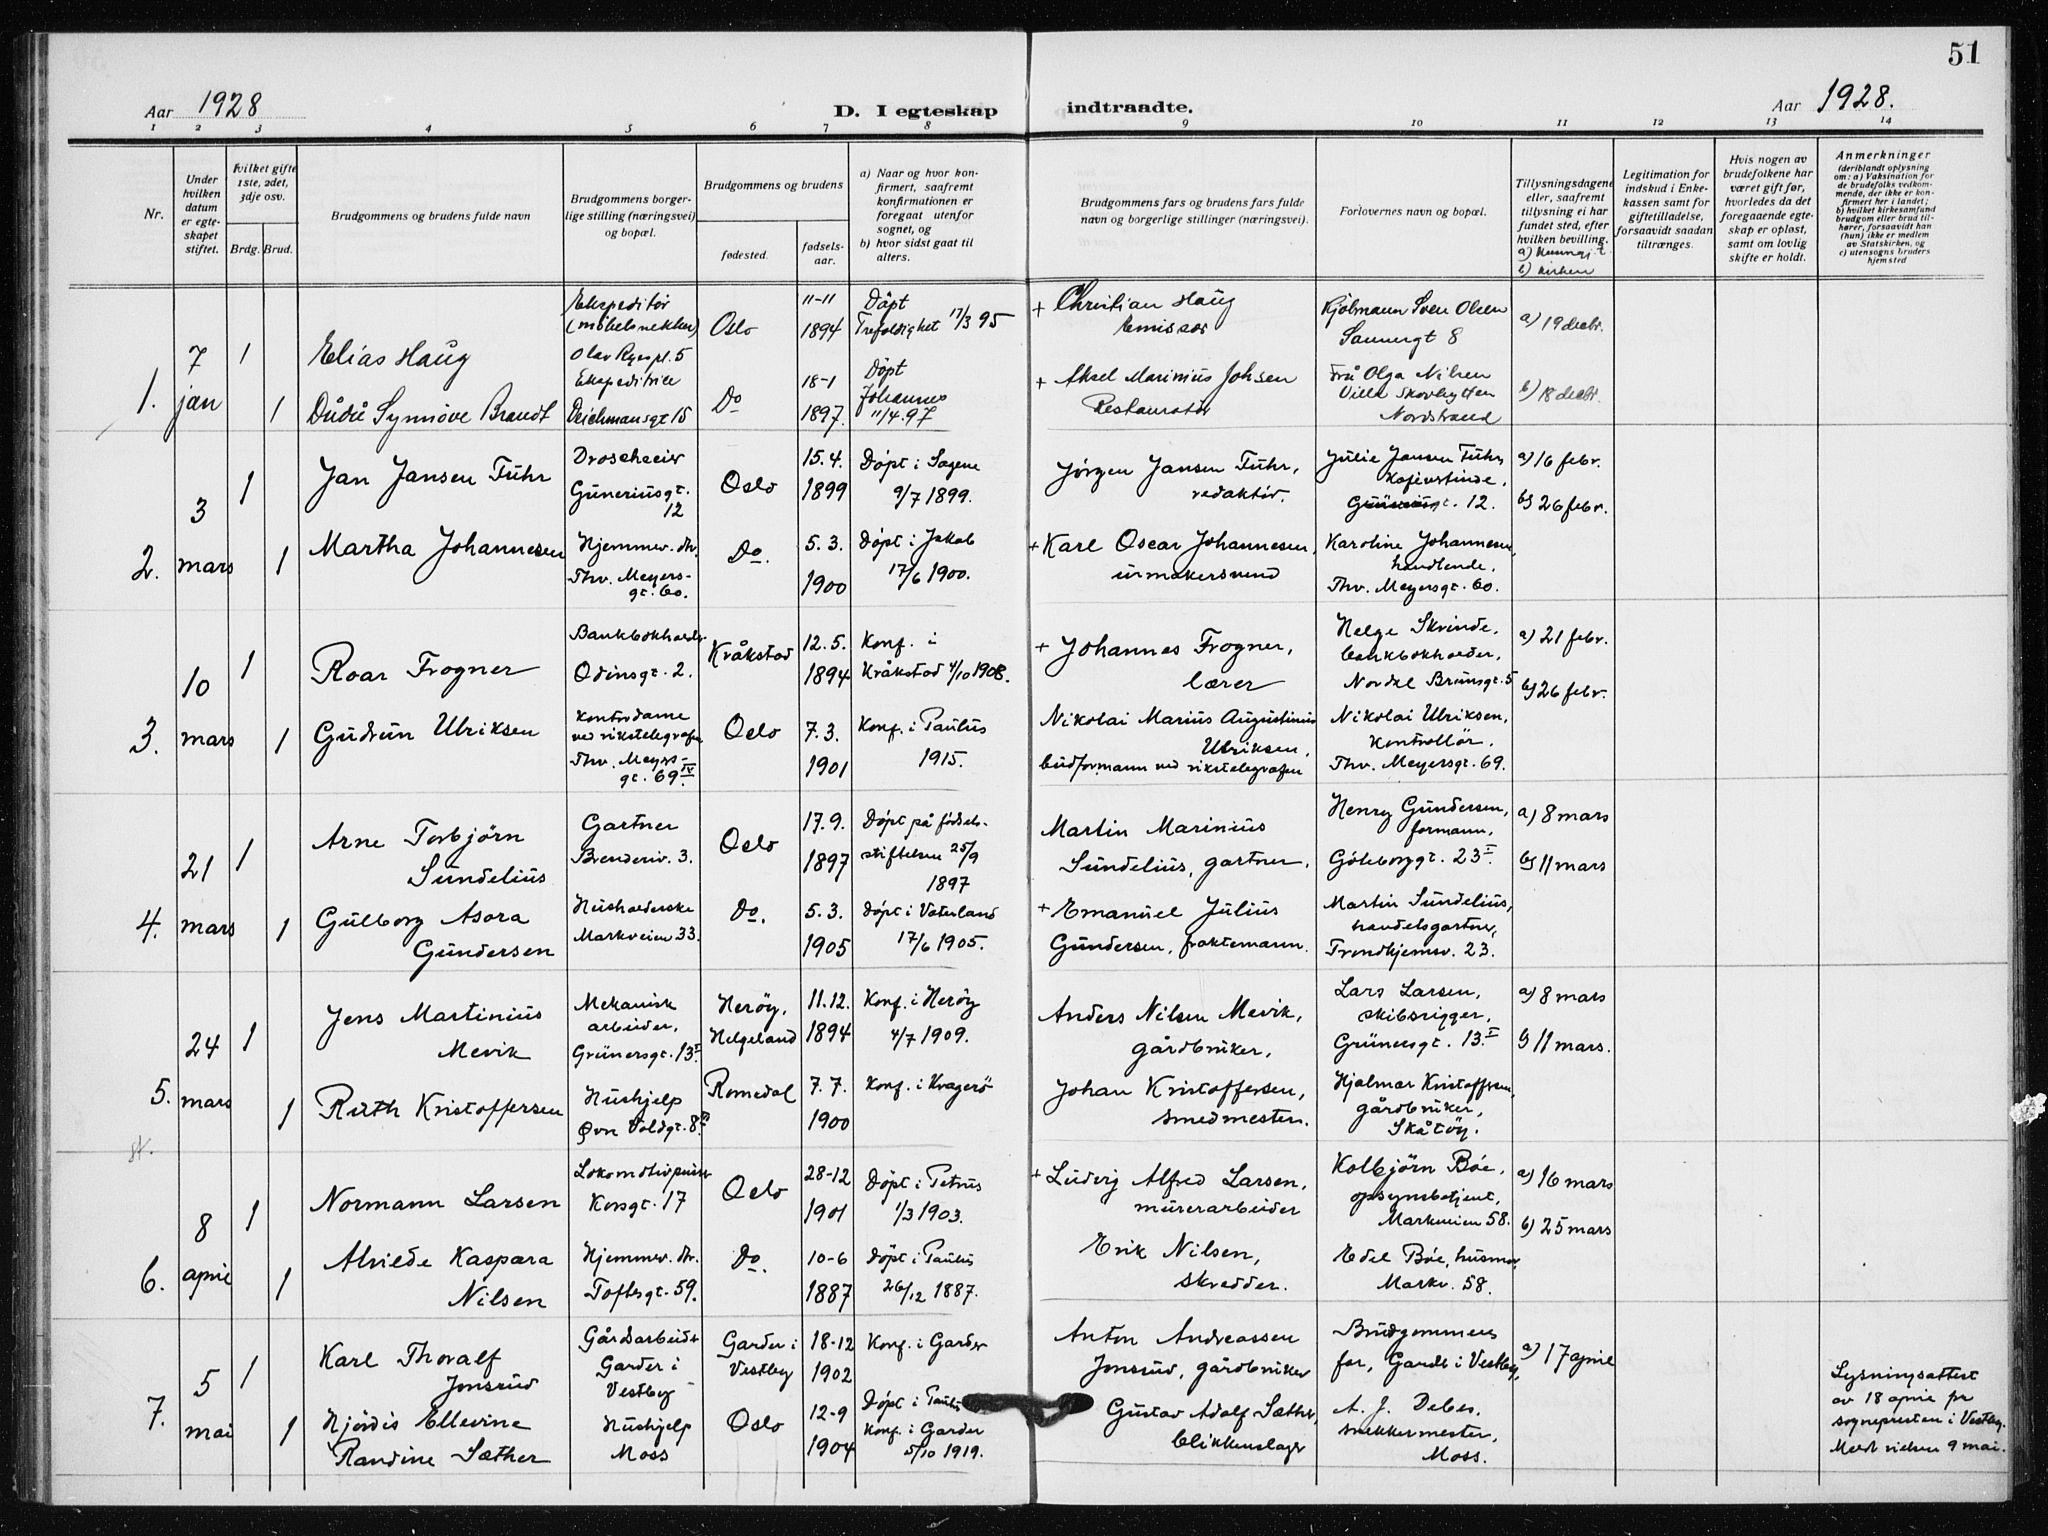 51
Aar 1928
D. I egteskap indtraadte.
Aar 1928.
1 2 3 4 5 6 7 8 9 10 11 12 13 14
Nr.
Under
hvilken
datum
er egte-
skapet
stiftet.
hvilket gifte
1ste, 2det,
3dje osv.
Brdg. Brud.
Brudgommens og brudens fulde navn
Brudgommens borger-
lige stilling (næringsvei)
og bopæl.
Brudgommens og brudens
fødested.
fødsels-
aar.
a) Naar og hvor kon-
firmert, saafremt
konfirmationen er
foregaat utenfor
sognet, og
b) hvor sidst gaat til
alters.
Brudgommens fars og brudens fars fulde
navn og borgerlige stillinger (næringsvei).
Forlovernes navn og bopæl.
Tillysningsdagene
eller, saafremt
tillysning ei har
fundet sted, efter
hvilken bevilling.
b) kirken
Legitimation for
indskud i Enke-
kassen samt for
giftetilladelse,
forsaavidt saadan
tiltrænges.
Hvis nogen av
brudefolkene har
været gift før,
hvorledes da det
foregaaende egte-
skap er opløst,
samt om lovlig
skifte er holdt.
Anmerkninger
(deriblandt oplysning
om: a) Vaksination for
de brudefolks vedkom-
mende, der ikke er kon-
firmert her i landet;
b) hvilket kirkesamfund
brudgom eller brud til-
hører, forsaavidt han
(hun) ikke er medlem
av Statskirken, og
c) utensogns bruders
hjemsted
1.
7
jan
1
Elias Haug
Ekspeditør
(møbelsnekker)
Olav Ryespl. 5
Oslo
11-11
1894
Döpt
Trefoldighet 17/3 95
+ Christian Haug
Emissær
Sven Olsen
Sannergt 8
a) 19 decbr.
1
Dudu Synnöve Brandt
Ekspeditrice
Deichmansgt 15
Do
18-1
1897.
Döpt
Johannes
11/4.97
+ Aksel Marinius Johsen
Restauratör
Fru Olga Nilsen
Villa Skovhytten
Nordstrand
b) 18 decbr.
2.
3
mars
1
Jan Jansen Fuhr
Droscheeier
Guneriusgt.
12
Oslo
15.4.
1899
Döpt i Sagene
9/7 1899.
Jørgen Jansen Fuhr,
redaktør.
Julie Jansen Fuhr,
12.
a) 16 febr.
b) 26 febr.
1
Martha Johannesen
Hjemmev. dtr.
Thv. Meyers-
gt. 60.
Do.
5.3.
1900
Døpt i Jakob
17/6 1900.
+ Karl Oscar Johannesen,
urmakersvend
Karoline Johannesen,
handlende,
Thv. Meyersgt. 60.
3.
10
mars
1
Roar Frogner
Bankbokholder
Odinsgt. 2.
Kråkstad
12.5.
1894
Konf. i
Kråkstad 4/10 1908.
+ Johannes Frogner,
lærer
Helge Skrinde,
bankbokholder,
Nordal Brunsgt. 5
a) 21 febr.
b) 26 febr.
1
Gudrun Ulriksen
Kontordame
ved rikstelegrafen
Thv. Meyers-
gt. 69 IV
Oslo
7.3.
1901
Konf. i Paulus
1915.
Nikolai Marius Augustinus
Ulriksen,
budformann ved rikstelegrafen
Nikolai Ulriksen,
Kontrollör.
Thv. Meyersgt. 69.
4.
21
mars
1
Arne Torbjörn
Sundelius
Gartner
Brenneriv. 3.
Oslo
17.9.
1897
Døpt på fødsels-
stiftelsen 25/9
1897
Martin Marinius
Sundelius, gartner.
Henry Gundersen,
formann,
Göteborggt. 23 I.
a) 8 mars
b) 11 mars
1
Gulborg Asora
Gundersen
Husholderske
Markveien 33.
Do.
5.3.
1905
Døpt i Vaterland
17/6 1905.
+ Emanuel Julius
Gundersen, fraktemann.
Martin Sundelius,
handelsgartner,
Trondhjemsv. 23.
5.
24
mars
1
Jens Martinius
Mevik
Mekanisk
arbeider,
Grünersgt. 13 I
Herøy,
Helgeland
11.12.
1894
Konf. i Herøy
4/7 1909.
Anders Nilsen Mevik,
gårdbruker,
Lars Larsen,
skibsrigger,
Grünersgt. 13. I
a) 8 mars
b) 11 mars.
1
Ruth Kristoffersen
Hushjelp
Øvre Voldgt. 8
Romedal
7.7.
1900
Konf. i Kragerö
Johan Kristoffersen,
smedmester.
Hjalmar Kristoffersen,
gårdbruker,
Skåtøy.
6.
8
april
1
Normann Larsen
Lokomotivpusser
Korsgt. 17
Oslo
28-12
1901
Døpt i Petrus
1/3 1903.
+ Ludvig Alfred Larsen,
murerarbeider
Kolbjörn Bøe,
opsynsbetjent,
Markveien 58.
a) 16 mars
b) 25 mars
1
Alvilde Kaspara
Nilsen
Hjemmev. dtr.
Toftesgt. 59.
Do.
10-6
1887
Døpt i Paulus
26/12 1887.
Erik Nilsen,
skredder.
Edel Bøe, husmor,
Markv. 58.
7.
5
mai
1
Karl Thoralf
Jonsrud
Gårdsarbeider
Garder i
Vestby
Garder i
Vestby
18-12
1902
Konf. i Garder
Anton Andreassen
Jonsrud, gårdbruker
Brudgommens
far, Garder i Vestby,
a) 17 april
1
Hjördis Ellevine
Randine Sæther
Hushjelp
Moss
Oslo
12-9
1904
Døpt i Paulus
Konf. i Garder
5/10 1919.
Gustav Adolf Sæther,
blikkenslager
A. J. Debes,
snekkermester,
Moss.
Lysningsattest
av 18 april fr
sognepresten i Vestby.
Meldt vielsen 9 mai.